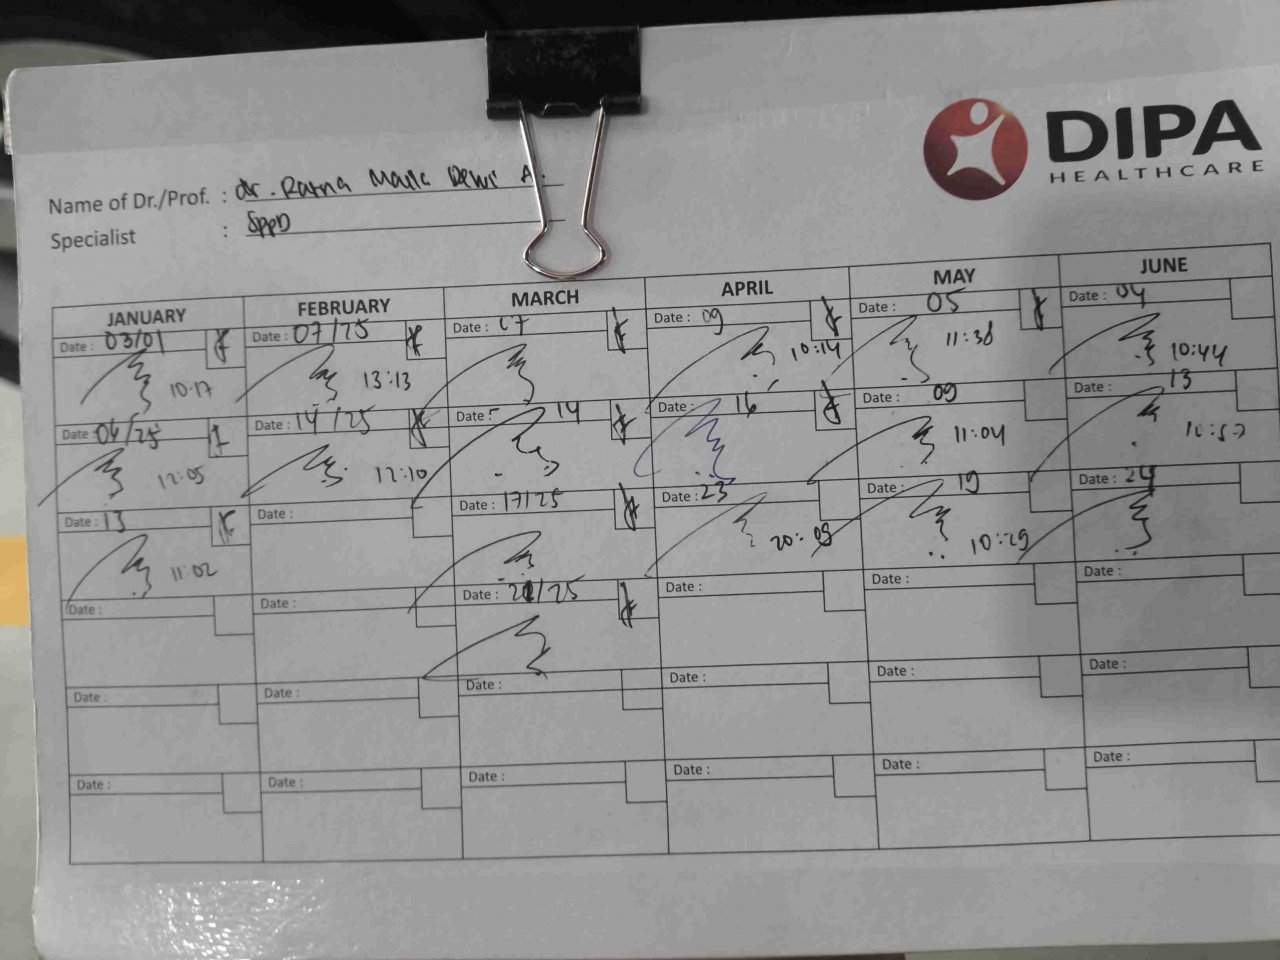 DIPA
HEALTHCARE
Name of Dr./Prof. : dr. Ratna Maila Dewi A.
Specialist : SppD
JANUARY FEBRUARY MARCH APRIL MAY JUNE
Date : 03/01 Date : 07/25 Date : 07 Date : 09 Date : 05 Date : 04
10:17 13:13 10:14 11:38 10:44
Date 06/25 Date : 14/25 Date : 14 Date : 16 Date : 09 Date : 13
12:05 12:10 11:04
Date : 13 Date : Date : 17/25 Date : 23 Date : 19 Date : 24
11:02 20:09 10:29
Date : Date : Date : /25 Date : Date : Date :
Date : Date : Date : Date : Date : Date :
Date : Date : Date : Date : Date : Date :